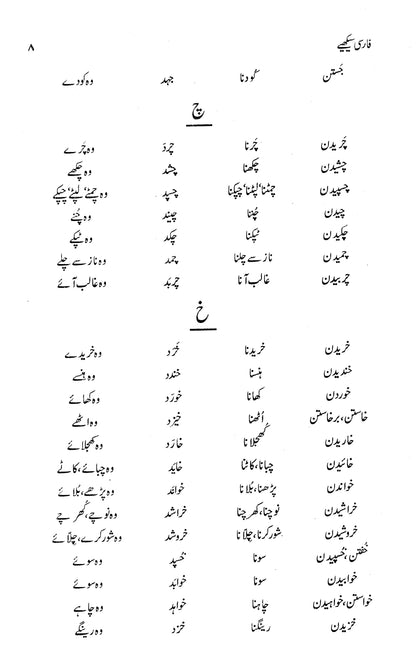 فارسی سیکھیے ۸
جَستن کُودنا جہد وہ کودے
چ
چَریدن چَرنا چَردَ وہ چَرے
چشیدن چکھنا چشد وہ چکھے
چسپیدن چمٹنا، لپٹنا، چپکنا چسپد وہ چمٹے، لپٹے، چپکے
چیدن چُننا چیند وہ چُنے
چکیدن ٹپکنا چکد وہ ٹپکے
چمیدن ناز سے چلنا چمد وہ ناز سے چلے
چربیدن غالب آنا چربَد وہ غالب آئے
خ
خریدن خریدنا خَرَد وہ خریدے
خندیدن ہنسنا خندد وہ ہنسے
خوردن کھانا خورَد وہ کھائے
خاستن، برخاستن اُٹھنا خیزد وہ اٹھے
خاریدن کُھجلانا خارَد وہ کھجلائے
خائیدن چبانا، کاٹنا خایَد وہ چبائے، کاٹے
خواندن پڑھنا، بُلانا خوانَد وہ پڑھے، بُلائے
خراشیدن نوچنا، کھرچنا خراشد وہ نوچے، کُھرچے
خروشیدن شور کرنا، چِلّانا خروشد وہ شور کرے، چلّائے
خُفتن، خُسپیدن سونا خُسپد وہ سوئے
خوابیدن سونا خوابَد وہ سوئے
خواستن، خواہیدن چاہنا خواہد وہ چاہے
خزیدن رینگنا خزد وہ رینگے